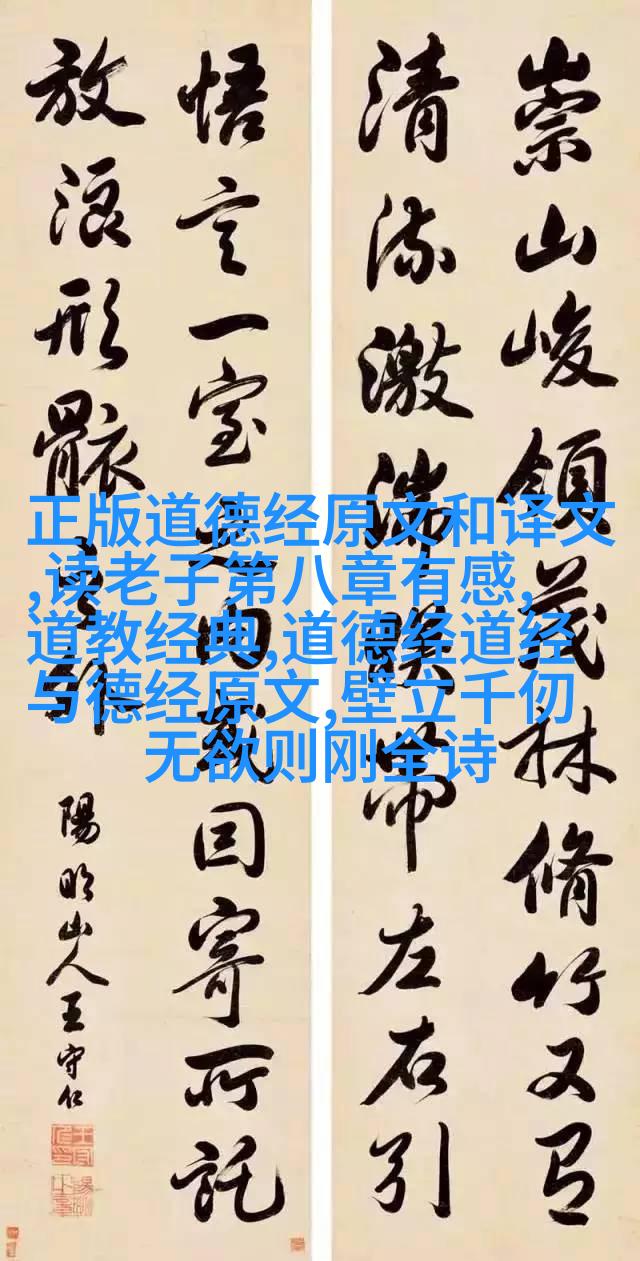 崇山峻領茂林脩竹又有
清流激湍暎帶左右引
悟言一室之內或因寄所託
放浪形骸之外
陽明山人王守仁
正版道德经原文和译文
,读老子第八章有感,
道教经典,道德经道经
与德经原文,壁立千仞
无欲则刚全诗